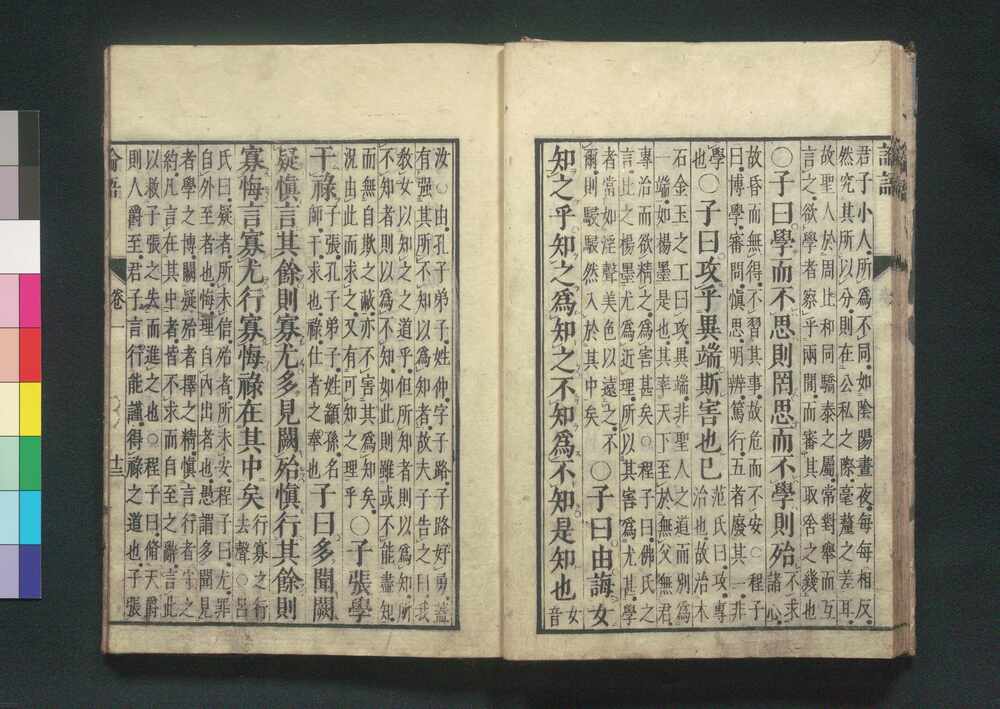 論語
君子小人所爲不同如陰陽晝夜每每相反
然究其所以分則在公私之際毫釐之差耳
故聖人於周比和同驕泰之屬常對舉而互
言之欲學者察乎兩閒而審其取舍之幾也
○子曰學而不思則罔思而不學則殆不求諸心
故昏而無得不習其事故危而不安○程子
曰博學審問愼思明辨篤行五者廢其一非
學也○子曰攻乎異端斯害也已范氏曰攻專治也故治木
石金玉之工曰攻異端非聖人之道而別爲
一端如楊墨是也其率天下至於無父無君
專治而欲精之爲害甚矣○程子曰佛氏之
言比之楊墨尤爲近理所以其害爲尤甚學
者當如淫聲美色以遠之不爾則駸駸然入於其中矣○子曰由誨女
知之乎知之爲知之不知爲不知是知也女音
汝○由孔子弟子姓仲字子路子路好勇蓋
有强其所不知以爲知者故夫子告之曰我
敎女以知之之道乎但所知者則以爲知所
不知者則以爲不知如此則雖或不能盡知
而無自欺之蔽亦不害其爲知矣况由此而求之又有可知之理乎○子張學
干祿子張孔子弟子姓顓孫名師干求也祿仕者之奉也子曰多聞闕
疑愼言其餘則寡尤多見闕殆愼行其餘則
寡悔言寡尤行寡悔祿在其中矣行寡之行去聲○呂
氏曰疑者所未信殆者所未安程子曰尤罪
自外至者也悔理自內出者也愚謂多聞見
者學之博闕疑殆者擇之精愼言行者守之
約凡言在其中者皆不求而自至之辭言此
以救子張之失而進之也○程子曰脩天爵
則人爵至君子言行能謹得祿之道也子張
論語 卷一 十三